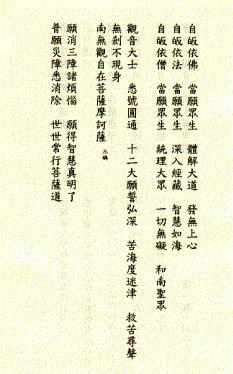 自皈依佛 當願眾生 體解大道 發無上心
自皈依法 當願眾生 深入經藏 智慧如海
自皈依僧 當願眾生 統理大眾 一切無礙 和南聖眾
觀音大士 悉號圓通 十二大願誓弘深 苦海度迷津 救苦尋聲
無剎不現身
南無觀自在菩薩摩訶薩 三稱
願消三障諸煩惱 願得智慧真明了
普願災障悉消除 世世常行菩薩道